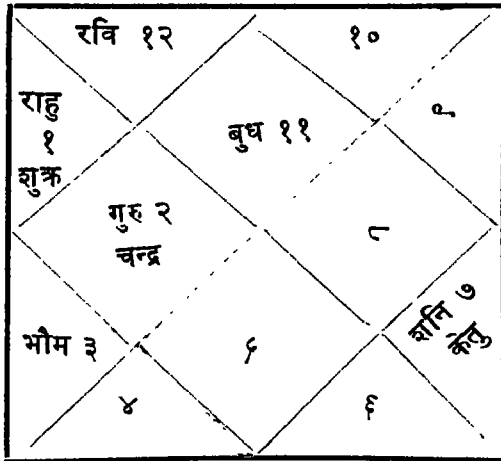 रवि १२
१०
राहु
१
शुक्र
बुध ११
९
गुरु २
चन्द्र
८
भौम ३
५
शनि ७
केतु
४
६